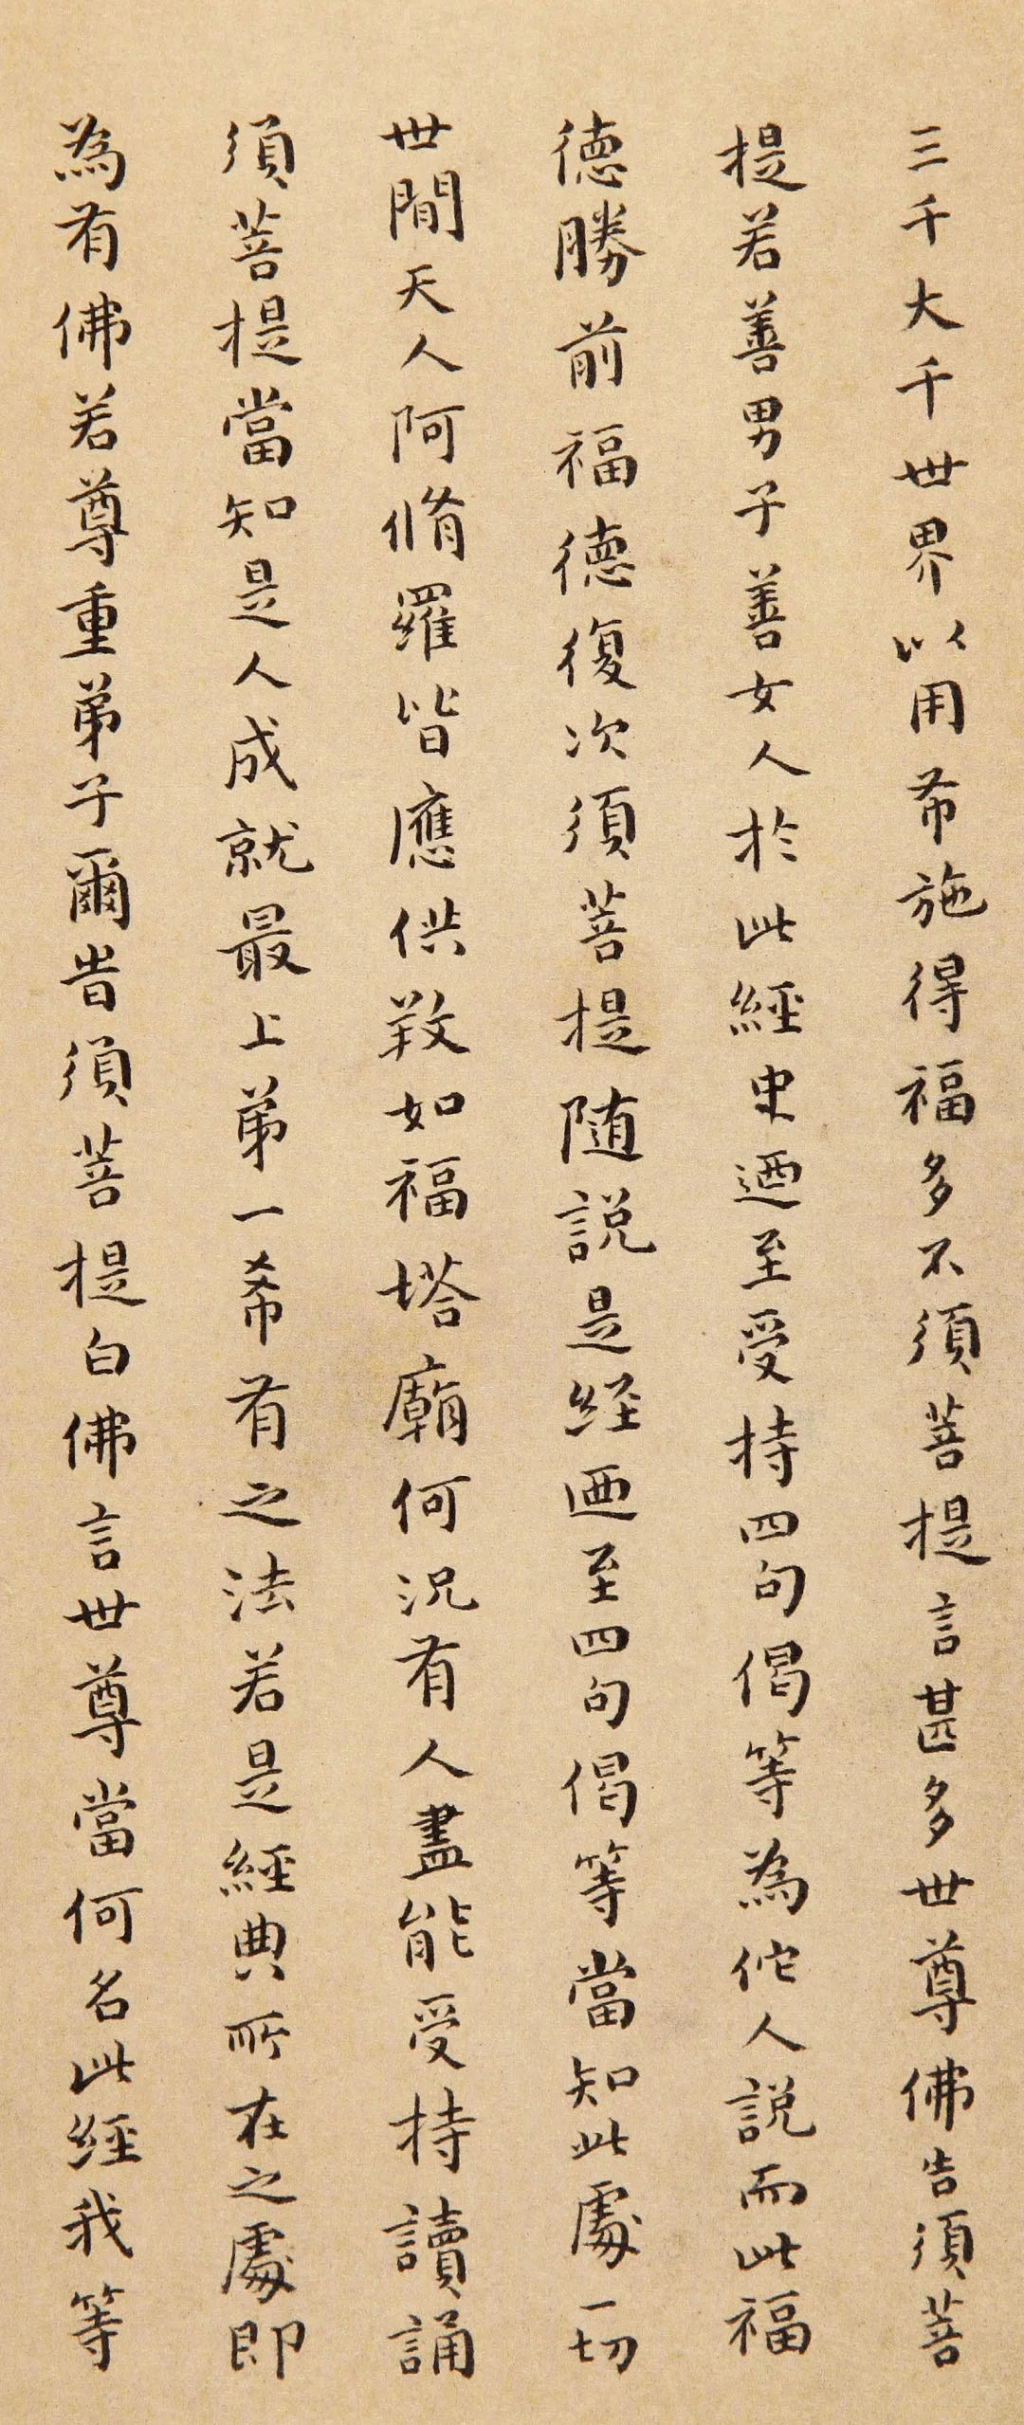 三千大千世界以用布施得福多不須菩提言甚多世尊佛告須菩
提若善男子善女人於此經史迺至受持四句偈等為佗人説而此福
德勝前福德復次須菩提随説是経迺至四句偈等當知此處一切
世間天人阿脩羅皆應供養如福塔廟何況有人盡能受持讀誦
須菩提當知是人成就最上第一希有之法若是經典所在之處即
為有佛若尊重弟子爾旹須菩提白佛言世尊當何名此經我等